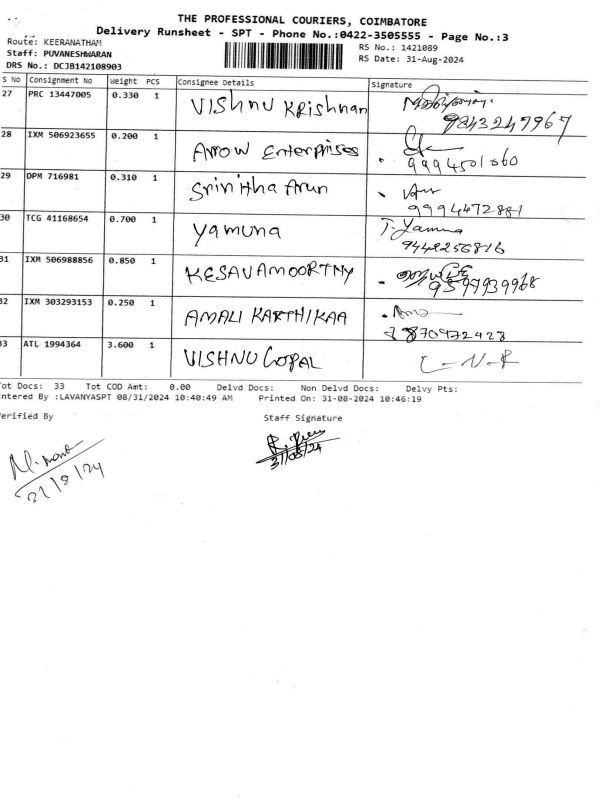 THE PROFESSIONAL COURIERS, COIMBATORE
Delivery Runsheet - SPT - Phone No.:0422-3505555 - Page No.:3
Route: KEERANATHAM
Staff: PUVANESHWARAN
DRS No.: DCJB142108903
RS No.: 1421089
RS Date: 31-Aug-2024
S No Consignment No Weight PCS Consignee Details Signature
27 PRC 13447005 0.330 1 VISHNU KRISHNAN 9843247967
28 IXM 506923655 0.200 1 Arrow Enterprises 9994501060
29 DPM 716981 0.310 1 Srinitha Arun 9994472881
30 TCG 41168654 0.700 1 Yamuna T. Yamuna 9442256816
31 IXM 506988856 0.850 1 KESAVAMOORTHY 9597939968
32 IXM 303293153 0.250 1 AMALI KARTHIKAA 8870972428
33 ATL 1994364 3.600 1 VISHNU GOPAL
Tot Docs: 33 Tot COD Amt: 0.00 Delvd Docs: Non Delvd Docs: Delvy Pts:
Entered By :LAVANYASPT 08/31/2024 10:40:49 AM Printed On: 31-08-2024 10:46:19
Verified By Staff Signature
31/08/24
31/8/24